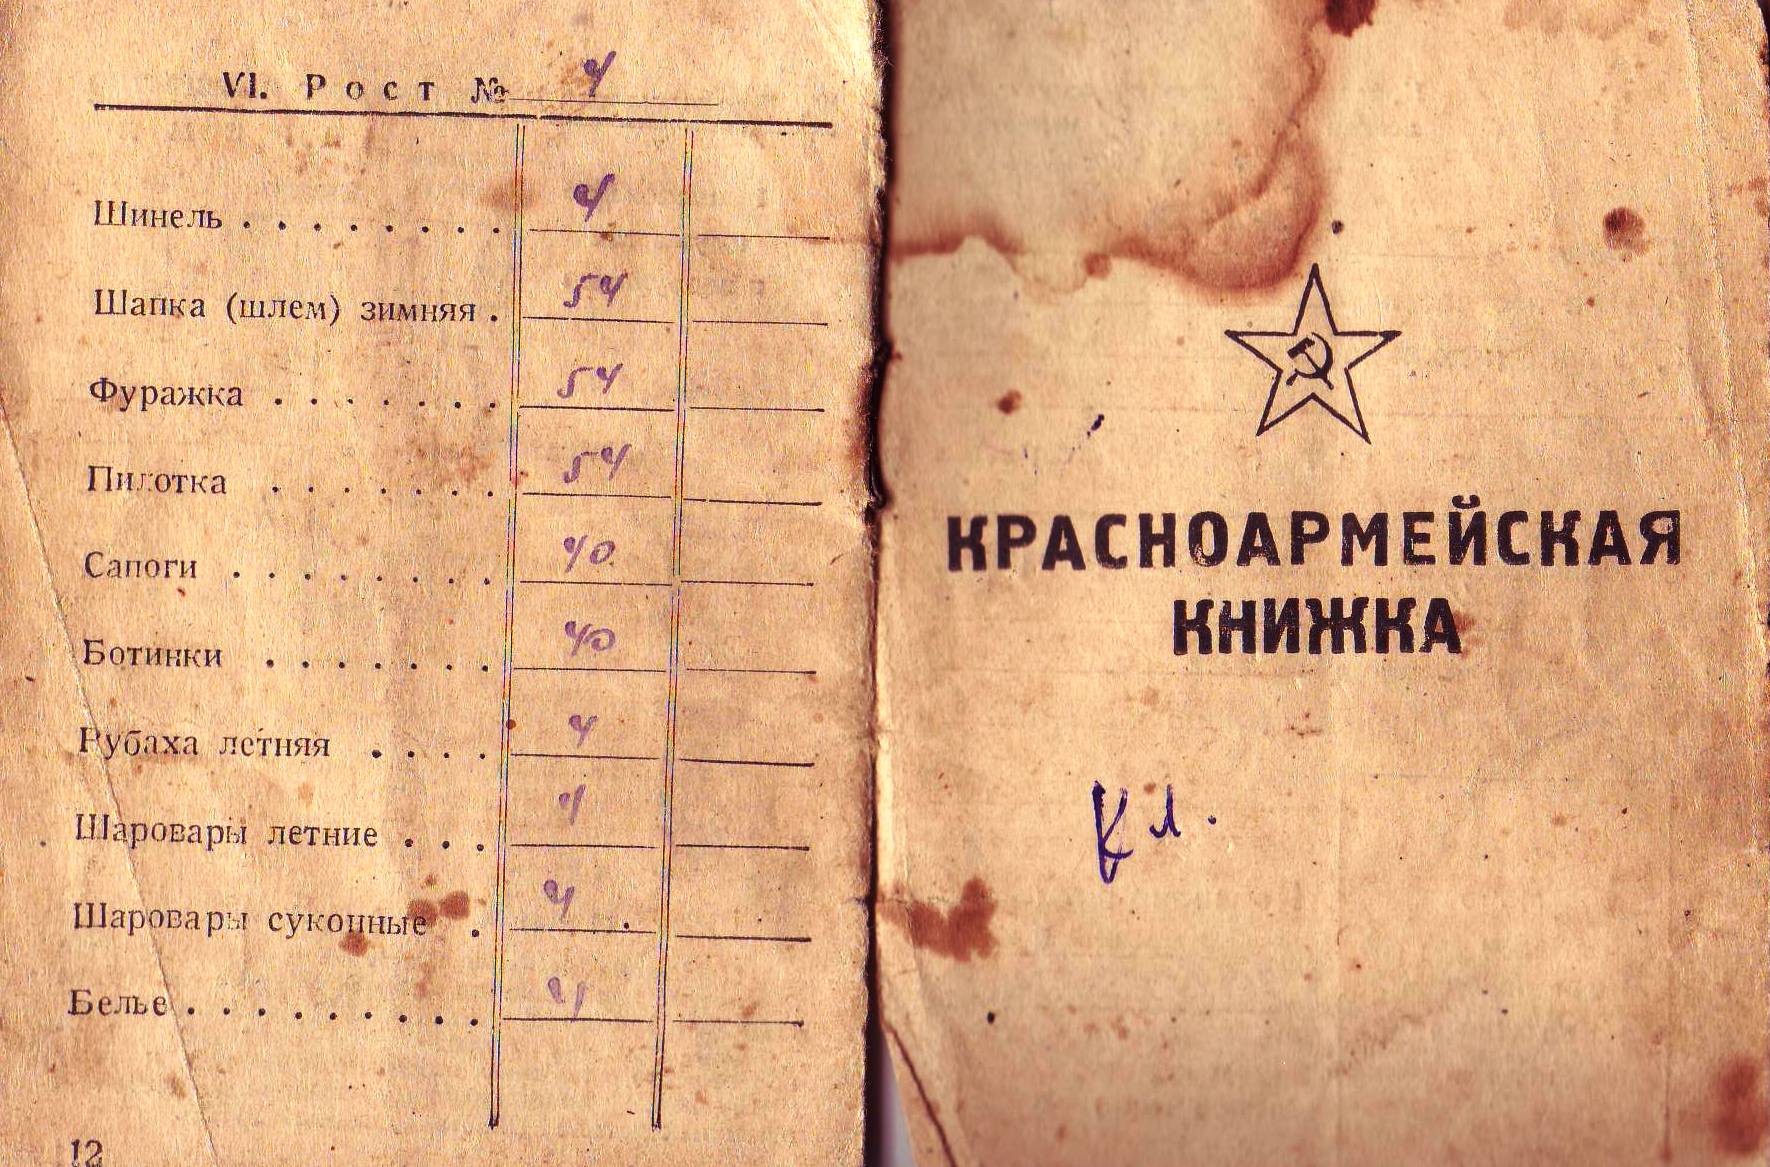 VI. Рост № 4
Шинель . . . . . . . . 4
Шапка (шлем) зимняя . 54
Фуражка . . . . . . . 54
Пилотка . . . . . . . 54
Сапоги . . . . . . . . 40
Ботинки . . . . . . . 40
Рубаха летняя . . . . 4
Шаровары летние . . . 4
Шаровары суконные . 4
Белье . . . . . . . . . 4
12
КРАСНОАРМЕЙСКАЯ
КНИЖКА
Кл.